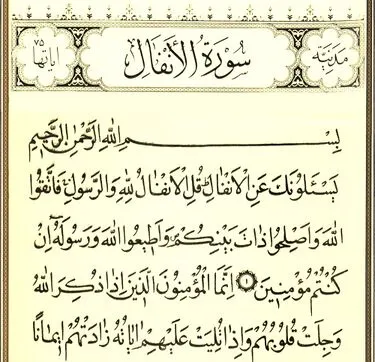 مدنية سورة الأنفال آياتها ٧٥
بِسْمِ اللّٰهِ الرَّحْمٰنِ الرَّحِيمِ
يَسْـَٔلُونَكَ عَنِ الْاَنْفَالِ قُلِ الْاَنْفَالُ لِلّٰهِ وَالرَّسُولِ فَاتَّقُوا
اللّٰهَ وَاَصْلِحُوا ذَاتَ بَيْنِكُمْ وَاَطِيعُوا اللّٰهَ وَرَسُولَهُٓ اِنْ
كُنْتُمْ مُؤْمِنِينَ ١ اِنَّمَا الْمُؤْمِنُونَ الَّذِينَ اِذَا ذُكِرَ اللّٰهُ
وَجِلَتْ قُلُوبُهُمْ وَاِذَا تُلِيَتْ عَلَيْهِمْ اٰيَاتُهُ زَادَتْهُمْ اِيمَانًا